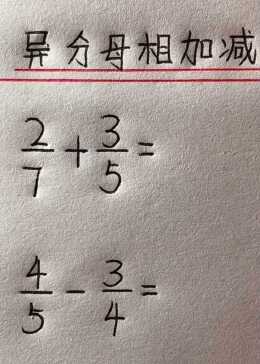 异分母相加减
2/7 + 3/5 =
4/5 - 3/4 =